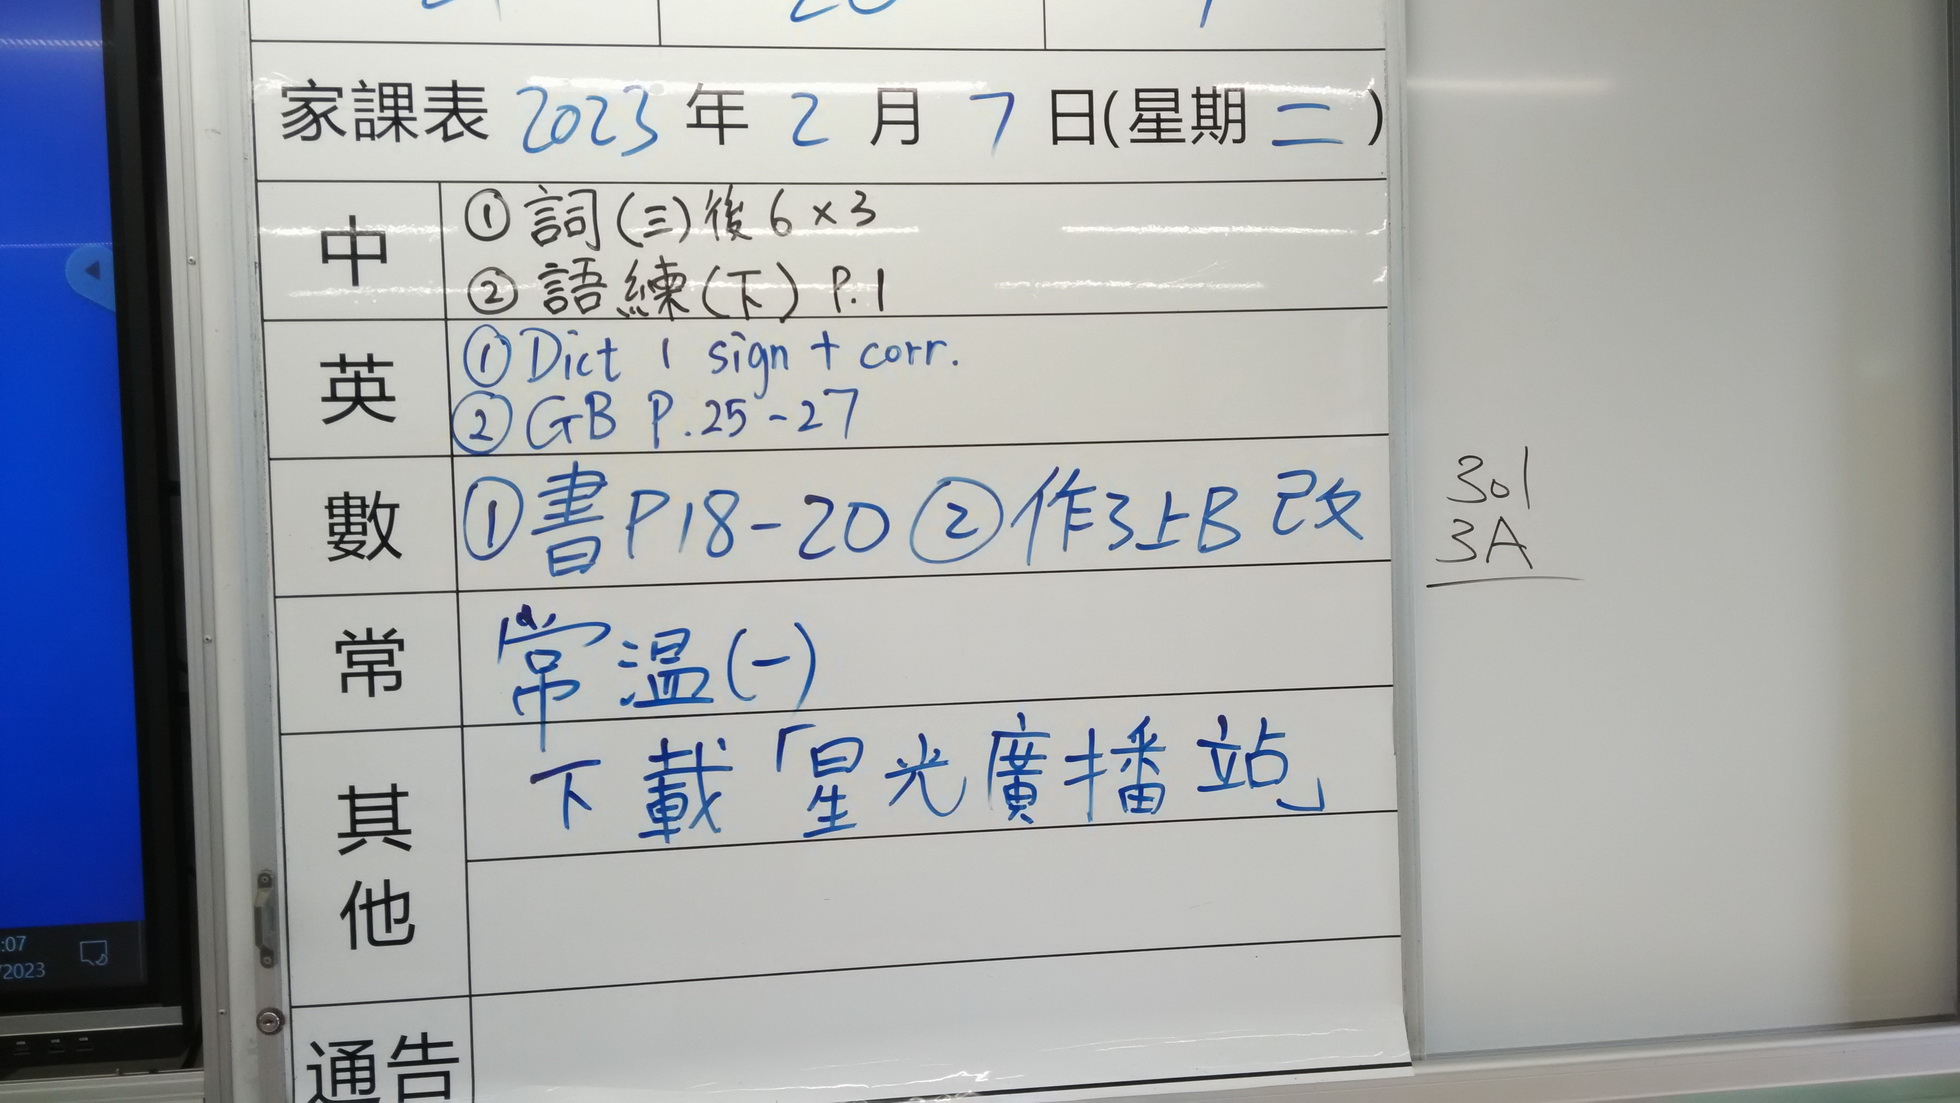 家課表 2023 年 2 月 7 日(星期 二)
中
① 詞(三)後 6 × 3
② 語練(下) P.1
英
① Dict 1 sign + corr.
② GB P.25-27
數
① 書 P18-20 ② 作3上B 改
常
常温(一)
其他
下載「星光廣播站」
通告
301
3A
:07
/2023